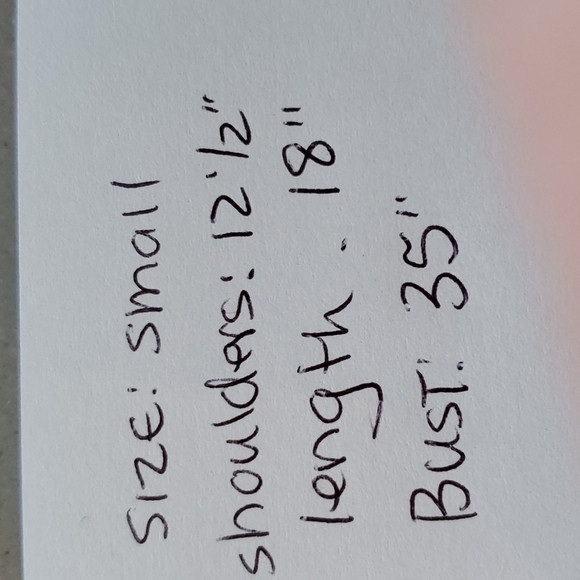 SIZE: small
shoulders: 12 1/2"
length. 18"
BUST: 35"